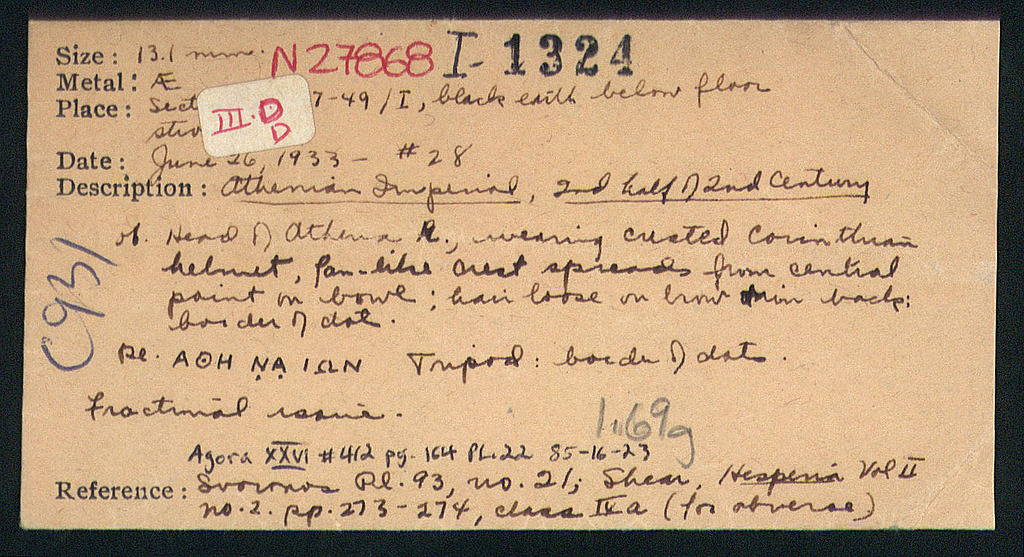 Size: 13.1 mm. N27868 I-1324
Metal: Æ
Place: Sect 7-49/I, black earth below floor
III.D
D
Date: June 26, 1933 - #28
Description: Athenian Imperial, 2nd half of 2nd Century
C931
ob. Head of Athena R., wearing crested Corinthian
helmet, fan-like crest spreads from central
point on bowl; hair loose on brow & in back;
border of dot.
Re. ΑΘΗ Ṇ̣Α̣ ΙΩΝ Tripod: border of dots.
Fractional issue.
1.69g
Agora XXVI #412 pg. 164 PL.22 85-16-23
Reference: Svoronos Pl. 93, no. 21; Shear, Hesperia Vol II
no. 2. pp. 273-274, class IX a (for obverse)